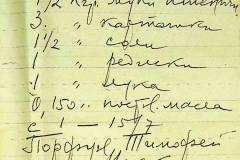 1 1/2 кгр. муки пшенич.
3 " картошки
1 1/2 " соли
1 " редиски
1 " лука
0,150 " постн. масла
с 1 — 15/7
Порфур, Тимофей